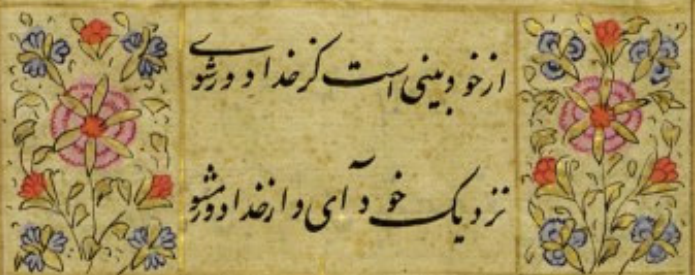 از خود بینی است کز خدا دور شوی
نزدیک خود آی و از خدا دور مشو